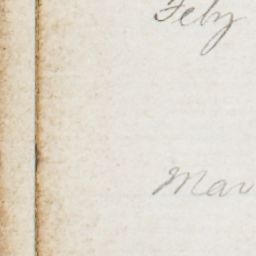 Feby
Mar